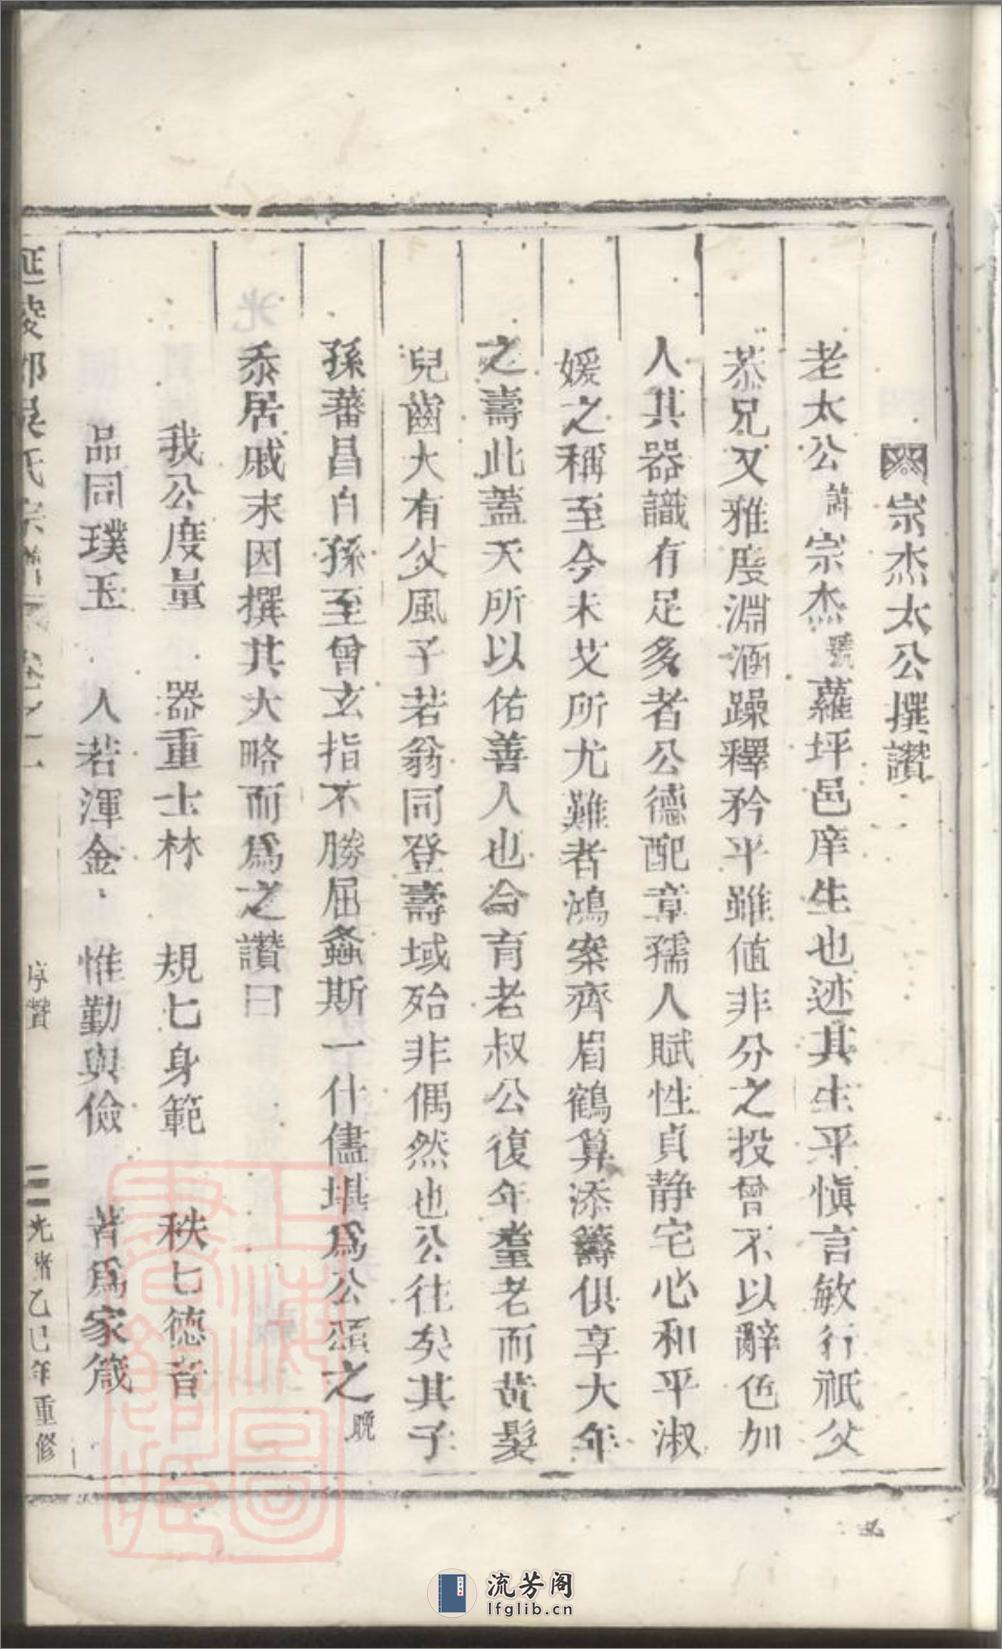 宗杰太公撰讚
老太公諱宗杰號蘿坪邑庠生也述其生平愼言敏行祇父
恭兄又雅度淵涵躁釋矜平雖値非分之投曾不以辭色加
人其器識有足多者公德配章孺人賦性貞静宅心和平淑
媛之稱至今未艾所尤難者鴻案齊眉鶴算添籌俱享大年
之壽此蓋天所以佑善人也命育老叔公復年耋老而黃髮
兒齒大有父風子若翁同登壽域殆非偶然也公往矣其子
孫蕃昌自孫至曾玄指不勝屈螽斯一什儘堪爲公頌之晚
忝居戚末因撰其大略而爲之讚曰
我公度量 器重士林 規匕身範 秩匕德音
品同璞玉 人若渾金 惟勤與儉 著爲家箴
延陵郡吳氏宗譜 卷之一 序贊 光緒乙巳年重修
上海圖書館藏
流芳阁
lfglib.cn